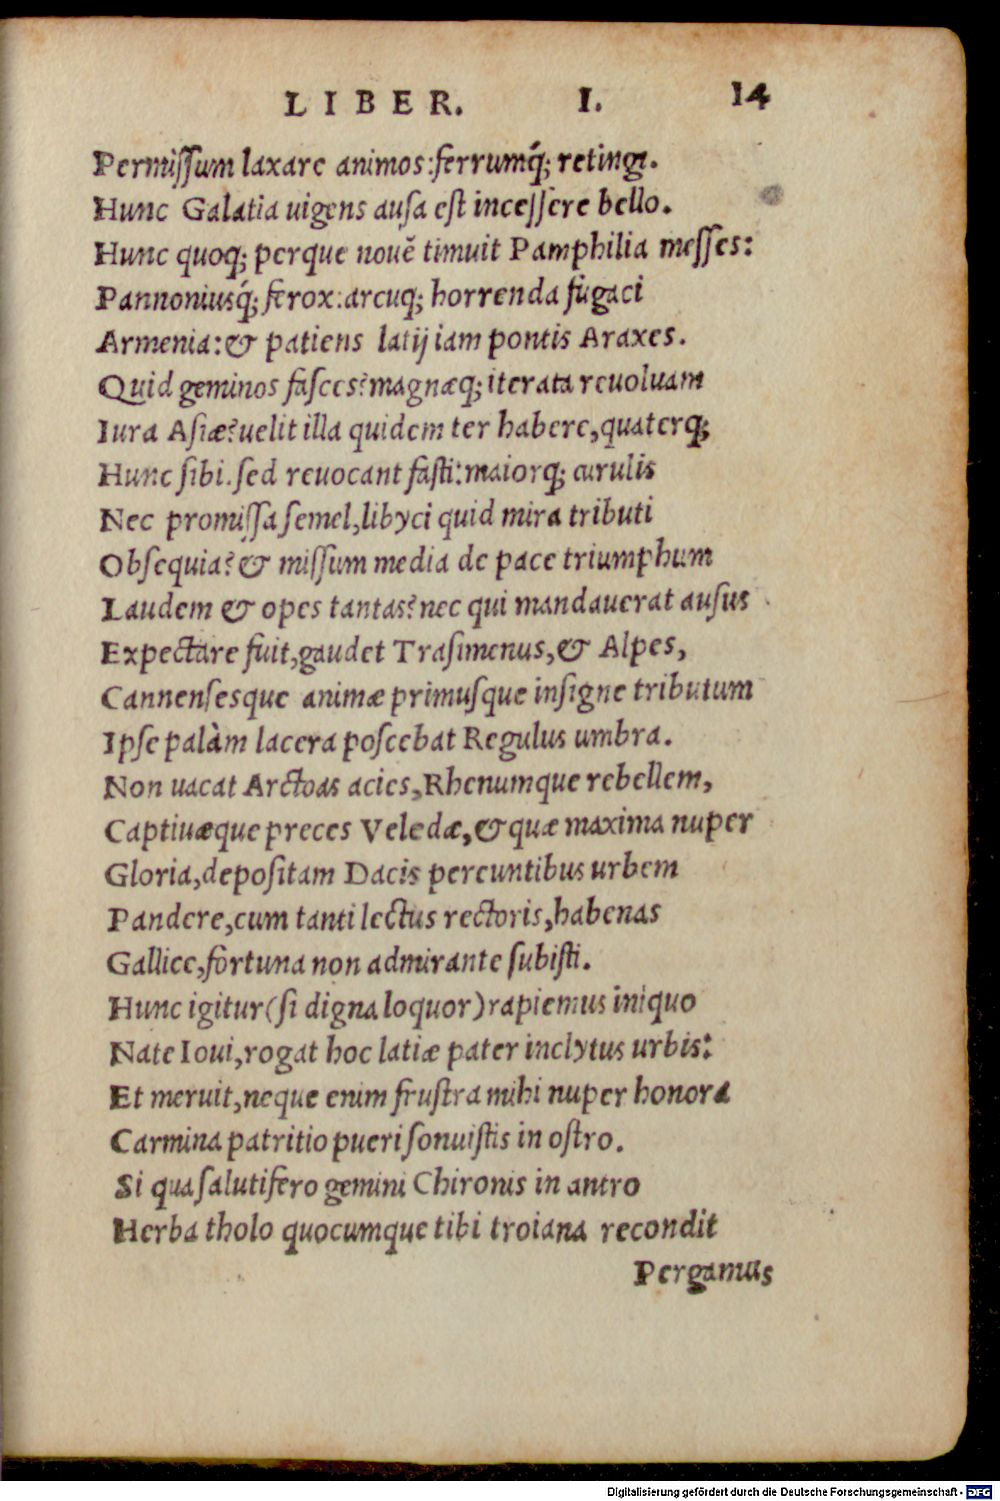 LIBER. I. 14
Permiſſum laxare animos:ferrumq́; retingi.
Hunc Galatia uigens auſa eſt inceſſere bello.
Hunc quoq; perque nouē timuit Pamphilia meſſes:
Pannoniusq́; ferox:arcuq; horrenda fugaci
Armenia:& patiens latij iam pontis Araxes.
Quid geminos faſces?magnæq; iterata reuoluam
Iura Aſiæ?uelit illa quidem ter habere,quaterq;
Hunc ſibi.ſed reuocant faſti:maiorq; curulis
Nec promiſſa ſemel,libyci quid mira tributi
Obſequia?& miſſum media de pace triumphum
Laudem & opes tantas?nec qui mandauerat auſus
Expectare fuit,gaudet Traſimenus,& Alpes,
Cannenſesque animæ primuſque inſigne tributum
Ipſe palàm lacera poſcebat Regulus umbra.
Non uacat Arctoas acies,Rhenumque rebellem,
Captiuæque preces Veledæ,& quæ maxima nuper
Gloria,depoſitam Dacis pereuntibus urbem
Pandere,cum tanti lectus rectoris,habenas
Gallice,fortuna non admirante ſubiſti.
Hunc igitur(ſi digna loquor)rapiemus iniquo
Nate Ioui,rogat hoc latiæ pater inclytus urbis:
Et meruit,neque enim fruſtra mihi nuper honora
Carmina patritio pueri ſonuiſtis in oſtro.
Si qua ſalutifero gemini Chironis in antro
Herba tholo quocumque tibi troiana recondit
Pergamus
Digitalisierung gefördert durch die Deutsche Forschungsgemeinschaft - DFG